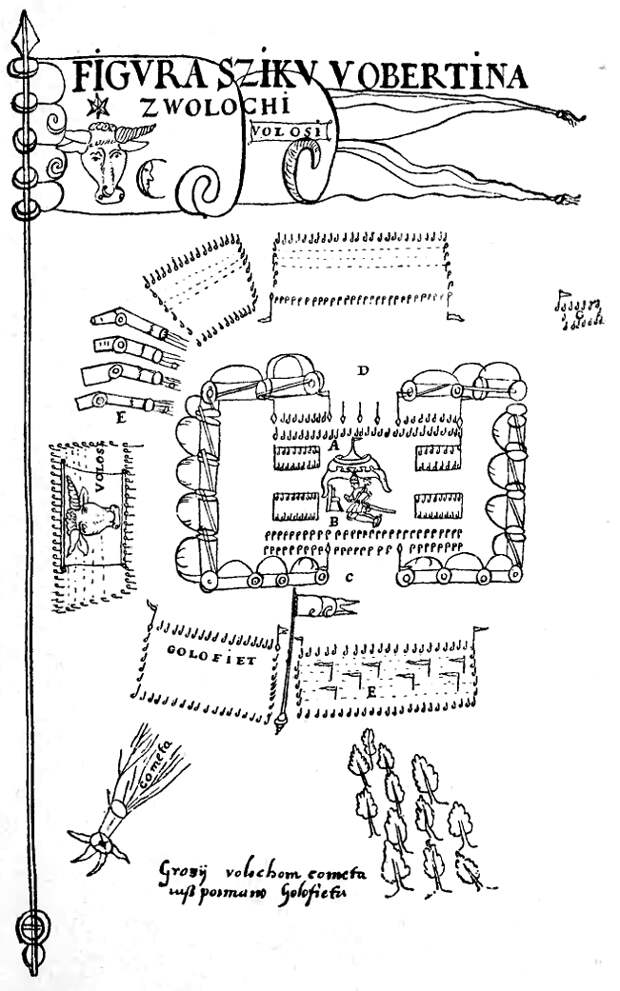 FIGVRA SZIKV VOBERTINA
ZWOLOCHI
VOLOSI
G
D
E
A
VOLOSI
B
C
GOLOFIET
E
Cometa
Grozÿ volochom cometa
iusz poimano Golofieta